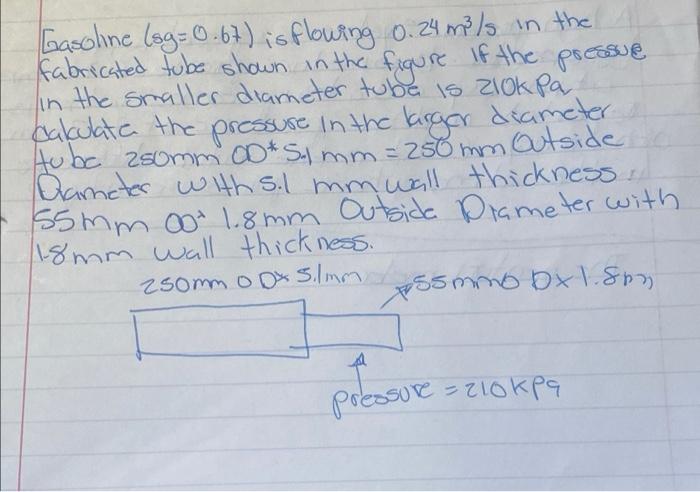 Gasoline (sg=0.67) is flowing 0.24 m³/s in the
fabricated tube shown in the figure If the pressue
in the smaller diameter tube is 210kPa
calculate the pressure in the larger diameter
tube 250mm OD* 5.1 mm = 250 mm Outside
Diameter with 5.1 mm wall thickness
55mm OD* 1.8mm Outside Diameter with
1.8mm wall thickness.
250mm OD x 5.1mm 55mm OD x 1.8mm
pressure = 210kPa